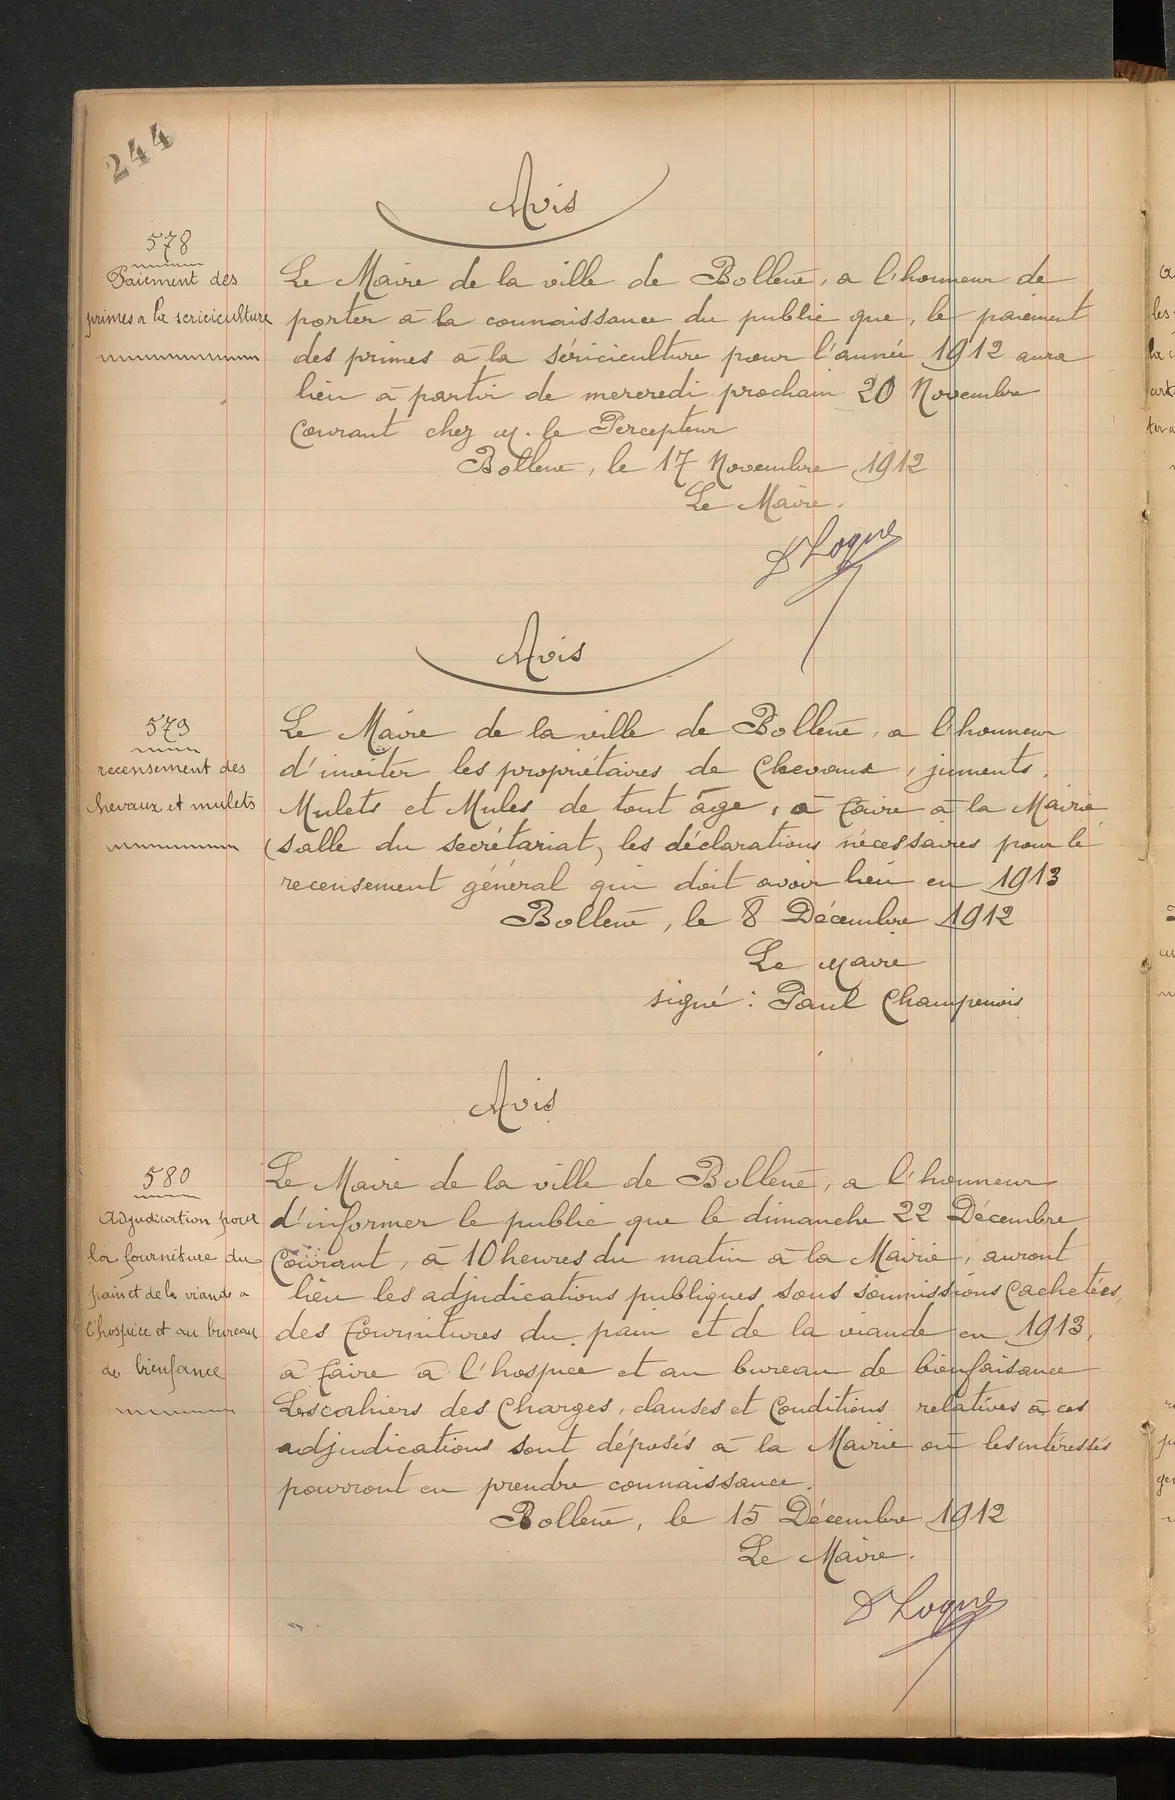 244
Avis
578
Paiement des
primes a la sericiculture
Le Maire de la ville de Bollène, a l'honneur de
porter à la connaissance du public que, le paiement
des primes à la sériciculture pour l'année 1912 aura
lieu à partir de mercredi prochain 20 Novembre
Courant chez M. le Percepteur
Bollène, le 17 Novembre 1912
Le Maire.
Avis
579
recensement des
chevaux et mulets
Le Maire de la ville de Bollène, a l'honneur
d'inviter les propriétaires de Chevaux, juments,
Mulets et Mules de tout âge, à faire à la Mairie
(salle du secrétariat) les déclarations nécessaires pour le
recensement général qui doit avoir lieu en 1913
Bollène, le 8 Décembre 1912
Le Maire
signé : Paul Champenois
Avis
580
Adjudication pour
la fourniture du
pain et de la viande a
l'hospice et au bureau
de bienfance
Le Maire de la ville de Bollène, a l'honneur
d'informer le public que le dimanche 22 Décembre
Courant, à 10 heures du matin à la Mairie, auront
lieu les adjudications publiques sous soumissions Cachetées,
des fournitures du pain et de la viande en 1913,
à faire à l'hospice et au bureau de bienfaisance
Les cahiers des Charges, clauses et Conditions relatives à ces
adjudications sont déposés à la Mairie où les intéressés
pourront en prendre connaissance.
Bollène, le 15 Décembre 1912
Le Maire.